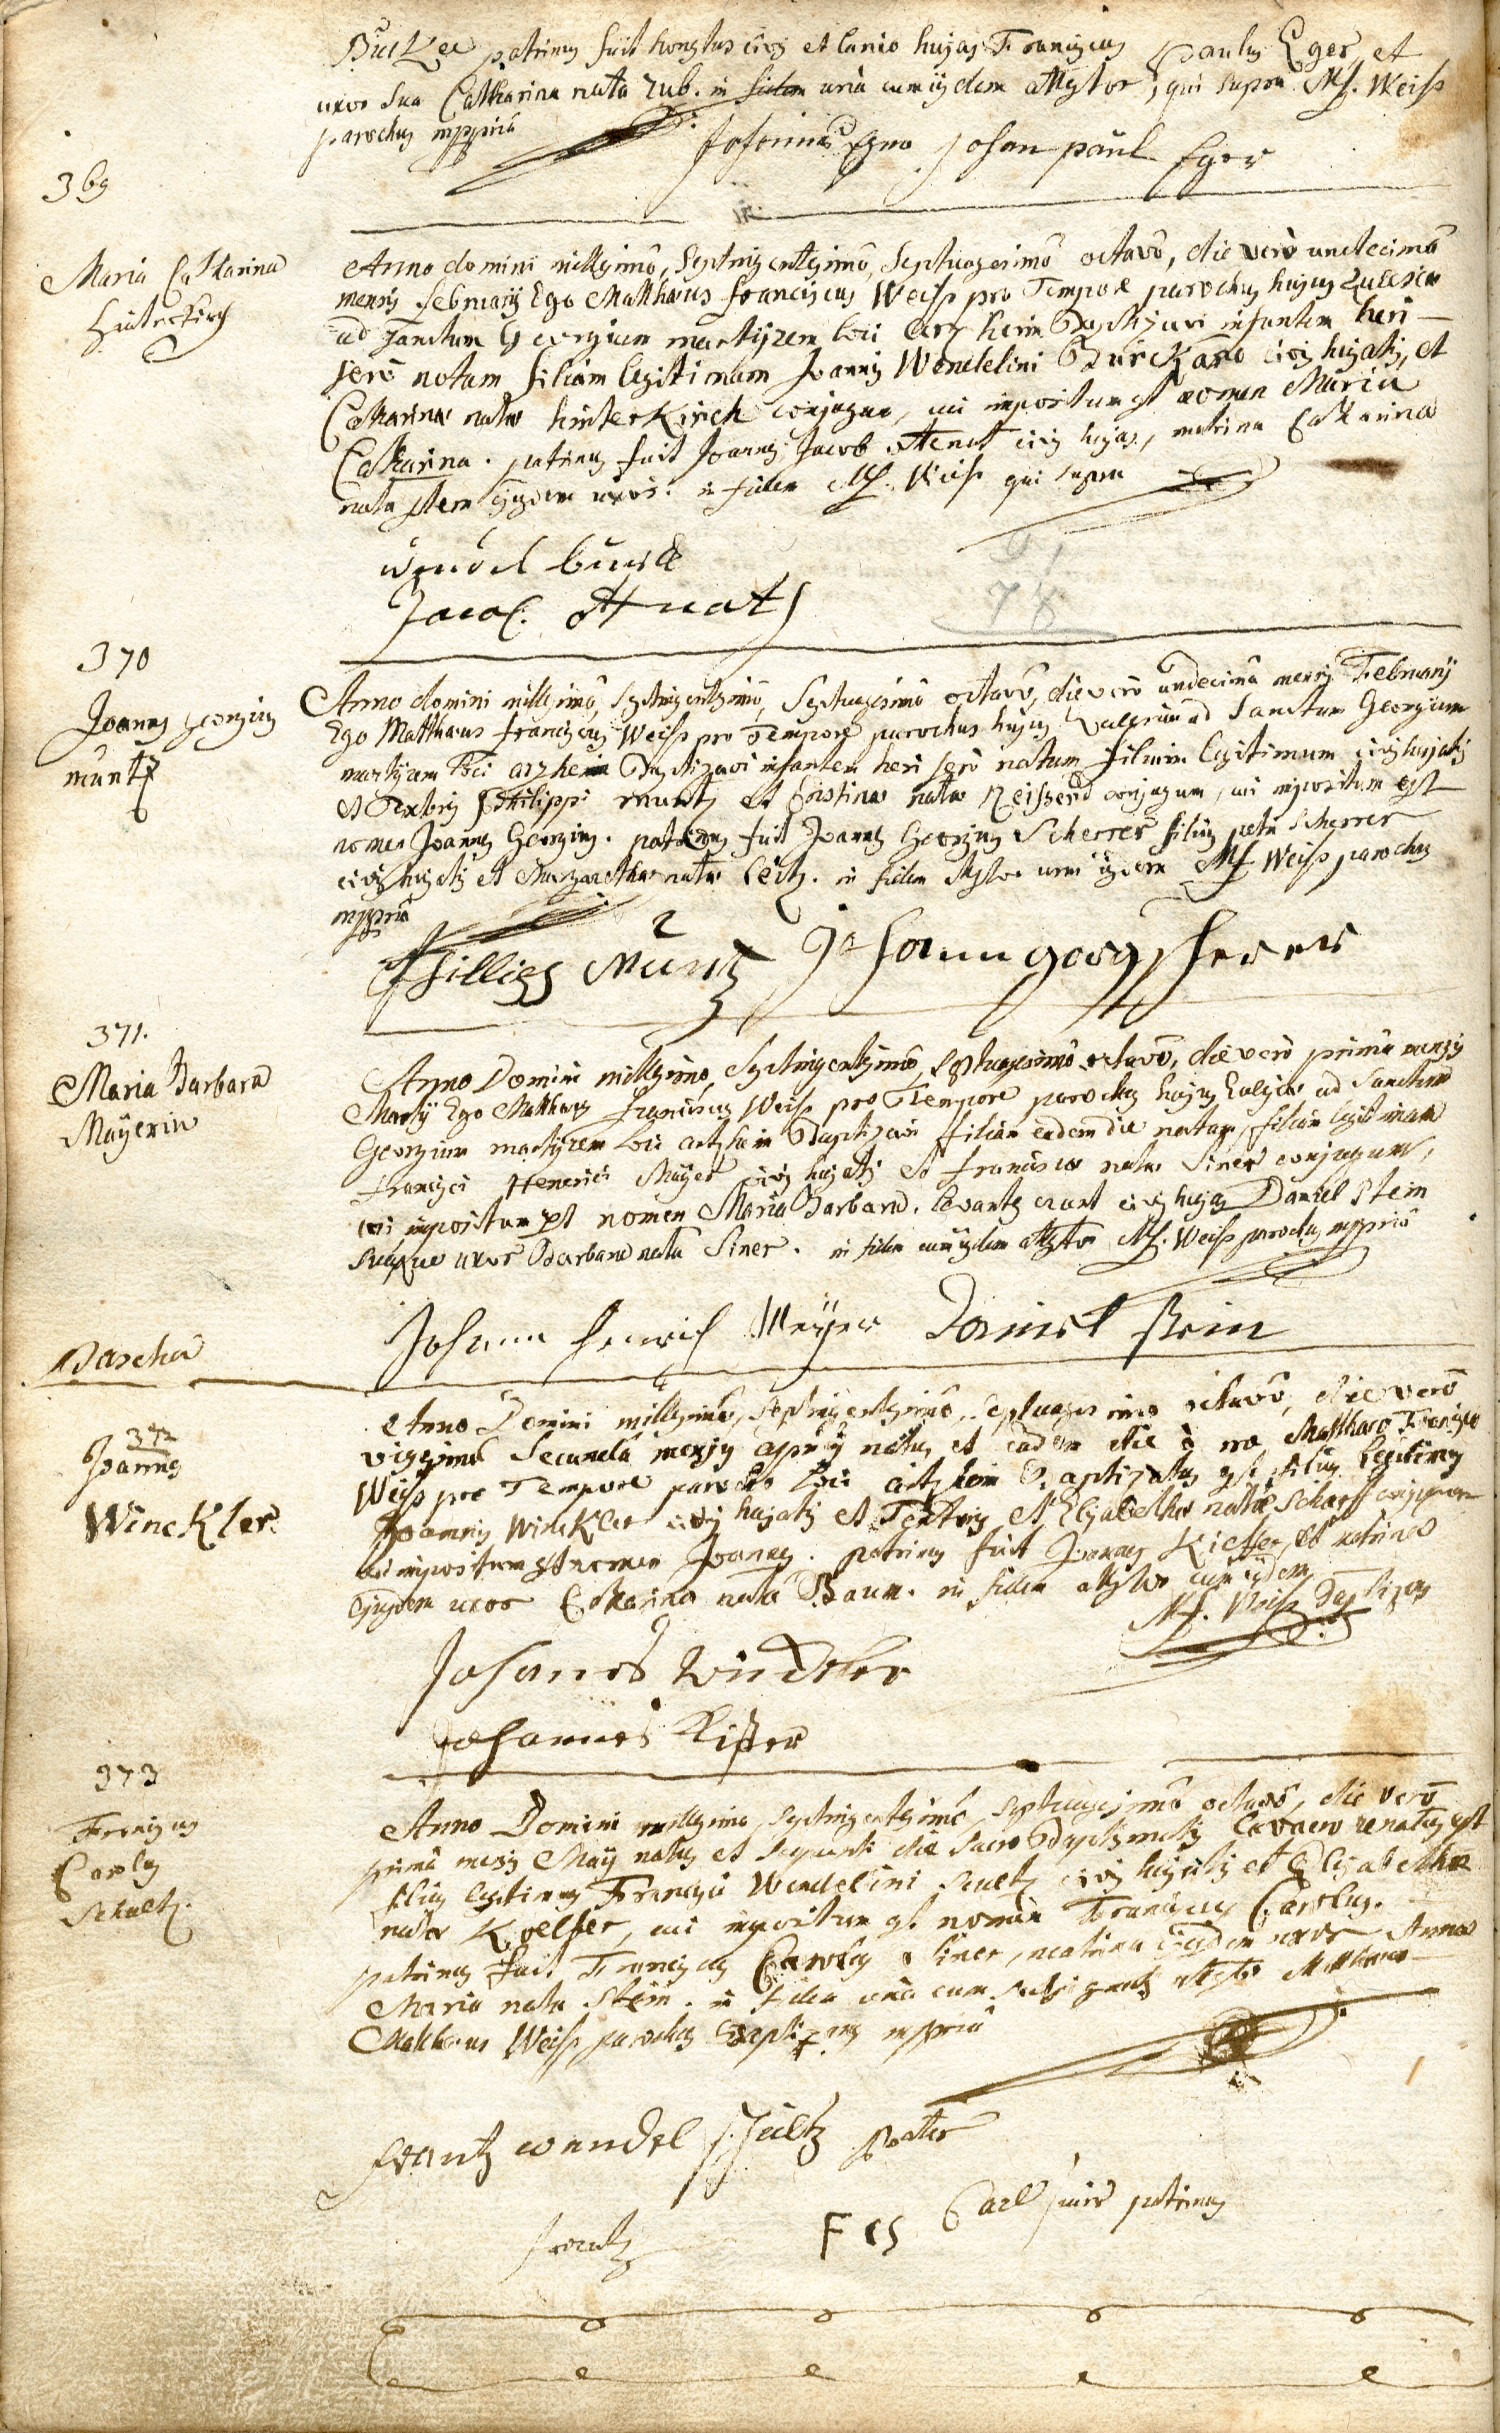 Burkee patrinus fuit honestus civis et lanio hujas Franciscus Paulus Eger, et
uxor sua Catharina nata Zub. in fidem unà cum iisdem attestor, qui supra Mf. Weiss
parochus mppriâ
Johannes Egno Johan paul Eger
369
Maria Catharina
Hinterkirch
Anno domini millesimô, Septingentesimô, Septuagesimô octavô, die verò undecimâ
mensis februarij Ego Matthæus franciscus Weiss pro Tempore parochus hujus Ecclesiæ
ad Sanctum Georgium martyrem loci arzheim Baptizavi infantem heri
serò natam filiam legitimam Joannis Wendelini Burckard civis hujatis, et
Catharinæ natæ hinterkirch conjugum, cui impositum est nomen Maria
Catharina. patrinus fuit Joannes Jacob Ottenat civis hujas, matrina Catharina
nata Stem ejusdem uxor. in fidem Mf. Weiss qui supra
wendel burck
Jacob Ottnat
78
370
Joannes Georgius
muntz
Anno domini millesimô, Septingentesimô, Septuagesimô octavô, die verò undecimâ mensis Februarij
Ego Matthæus franciscus Weiss pro Tempore parochus hujus Ecclesiæ ad Sanctum Georgium
martyrem loci arzheim Baptizavi infantem heri serò natum filium legitimum civis hujatis
et Textoris Philippi muntz et Cristinæ natæ Reisserd conjugum, cui impositum est
nomen Joannes Georgius. patrinus fuit Joannes Georgius Scherrer filius petri Scherrer
civis hujatis et Margarethæ natæ Leitz. in fidem attestor unà iisdem Mf Weiss parochus
mppriâ
Phillips Müntz Johann georg scherer
371.
Maria Barbara
Mayerin
Anno Domini millesimô, Septingentesimô, Septuagesimô octavô, die verò primâ mensis
Martij Ego Matthæus franciscus Weiss pro Tempore parochus hujus Ecclesiæ ad Sanctum
Georgium martyrem loci artzheim Baptizavi filiam eadem die natam, filiam legitimam
francisci Henrici Mayer civis hujatis et franciscæ natæ Siner conjugum,
cui impositum est nomen Maria Barbara. levantes erant civis hujas Daniel Stein
suaque uxor Barbara nata Siner. in fidem cum iisdem attestor Mf. Weiss parochus mppriâ
Johann Henrich Meyer Daniel stein
Pascha
372
Joannes
Winckler.
Anno Domini millesimô, Septingentesimô, Septuagesimo octavô, die verò
vigesimâ Secundâ mensis aprilis natus et eadem die à me Matthæo Francisco
Weiss pro Tempore parocho loci artzheim Baptizatus est filius legitimus
Joannis Winckler civis hujatis et Textoris et Elisabethæ natæ Scharff conjugum
cui impositum est nomen Joannes. patrinus fuit Joannes Kieffer, et matrina
ejusdem uxor Catharina nata Baum. in fidem attestor cum iisdem
Mf. Weiss Baptizans
Johannes Winckler
Johannes Kiffer
373
Franciscus
Carolus
Schultz.
Anno Domini millesimo, Septingentesimô, Septuagesimô octavô, die verò
primâ mensis Maij natus et sequenti die sacro Baptismatis lavacro renatus est
filius legitimus Francisci Wendelini Scultz civis hujatis et Elisabethæ
natæ Koelher, cui impositum est nomen Franciscus Carolus.
patrinus fuit Franciscus Carolus Siner, matrina ejusdem uxor Anna
Maria nata Stein. in fidem unà cum subsignatis attestor Matthæus
Matthæus Weiss parochus Baptizans mppriâ
frantz wendel schultz vatter
frantz F C S Carl siner patrinus